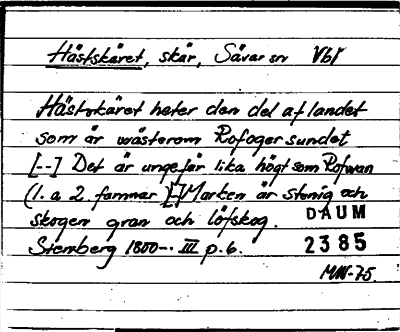 Hästskäret, skär, Sävar sn Vbt
Hästskäret heter den del af landet
som är wästerom Rofogersundet
[--] Det är ungefär lika högt som Rofwan
(1. a 2 famnar)[-] Marken är stenig och
skogen gran och löfskog.
DAUM
Stenberg 1800-. III p. 6.
2385
MW-75.